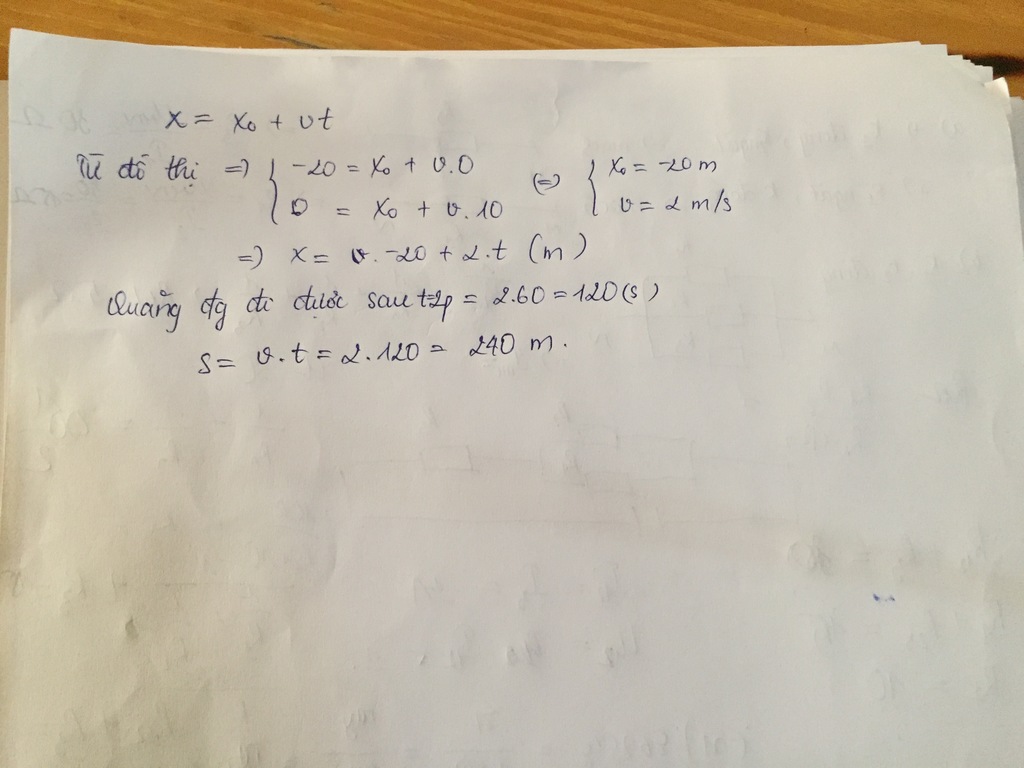 x = x₀ + vt
Từ đồ thị => { -20 = x₀ + v.0 (=) { x₀ = -20 m
{ 0 = x₀ + v.10 { v = 2 m/s
=> x = -20 + 2.t (m)
Quãng đg đi được sau t=2p = 2.60 = 120 (s)
S = v.t = 2.120 = 240 m.